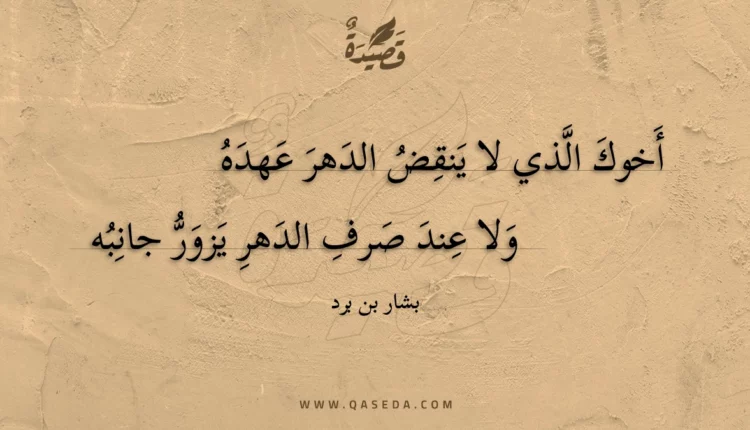 قَصِيدَةٌ
أَخوكَ الَّذي لا يَنقِضُ الدَهرَ عَهدَهُ
وَلا عِندَ صَرفِ الدَهرِ يَزوَرُّ جانِبُه
بشار بن برد
WWW.QASEDA.COM